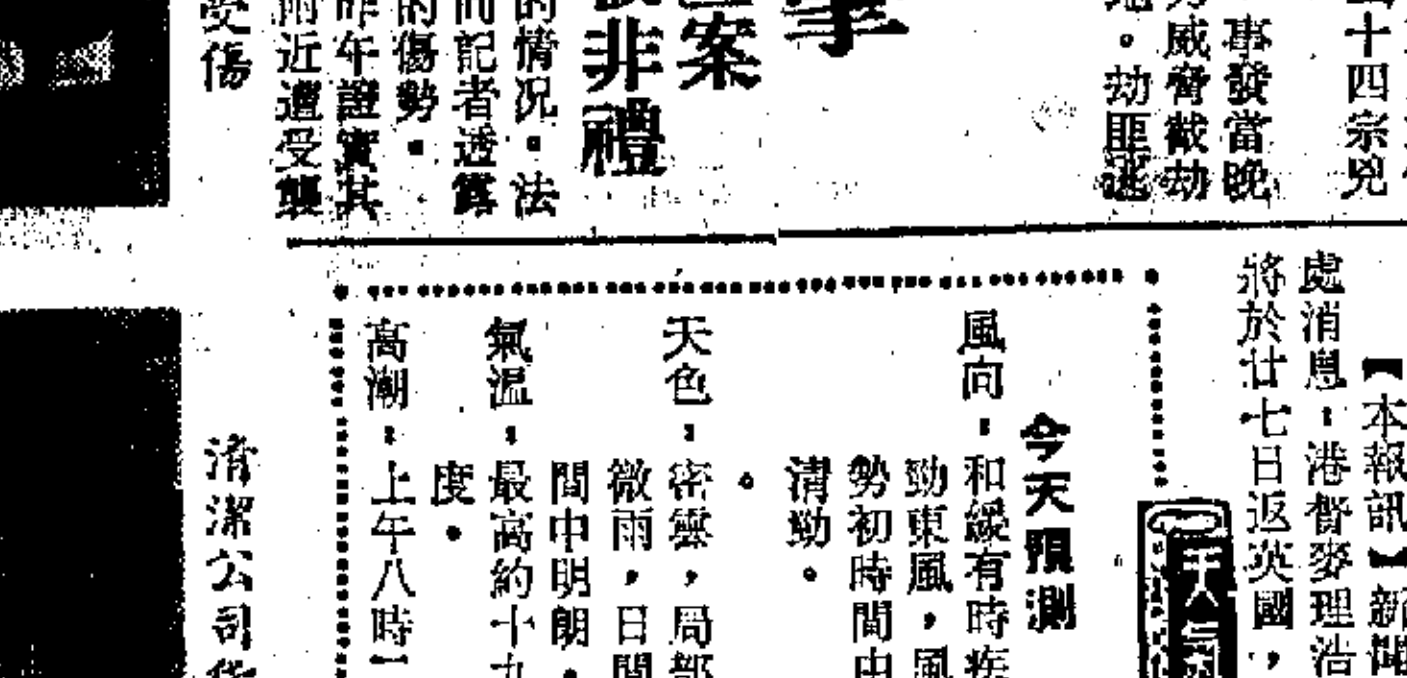 十四宗兇
事發當晚
威脅截劫
。劫匪逃
案
非禮
的情況。法
記者透露
的傷勢。
昨午證實其
雨近遭受襲
受傷
【本報訊】新聞
處消息:港督麥理浩
將於廿七日返英國,
天氣
今天預測
風向:和緩有時疾
勁東風,風
勢初時間中
清勁。
。
天色:密雲,局部
微雨,日間
間中明朗。
氣溫:最高約十九
度。
高潮:上午八時一
清潔公司